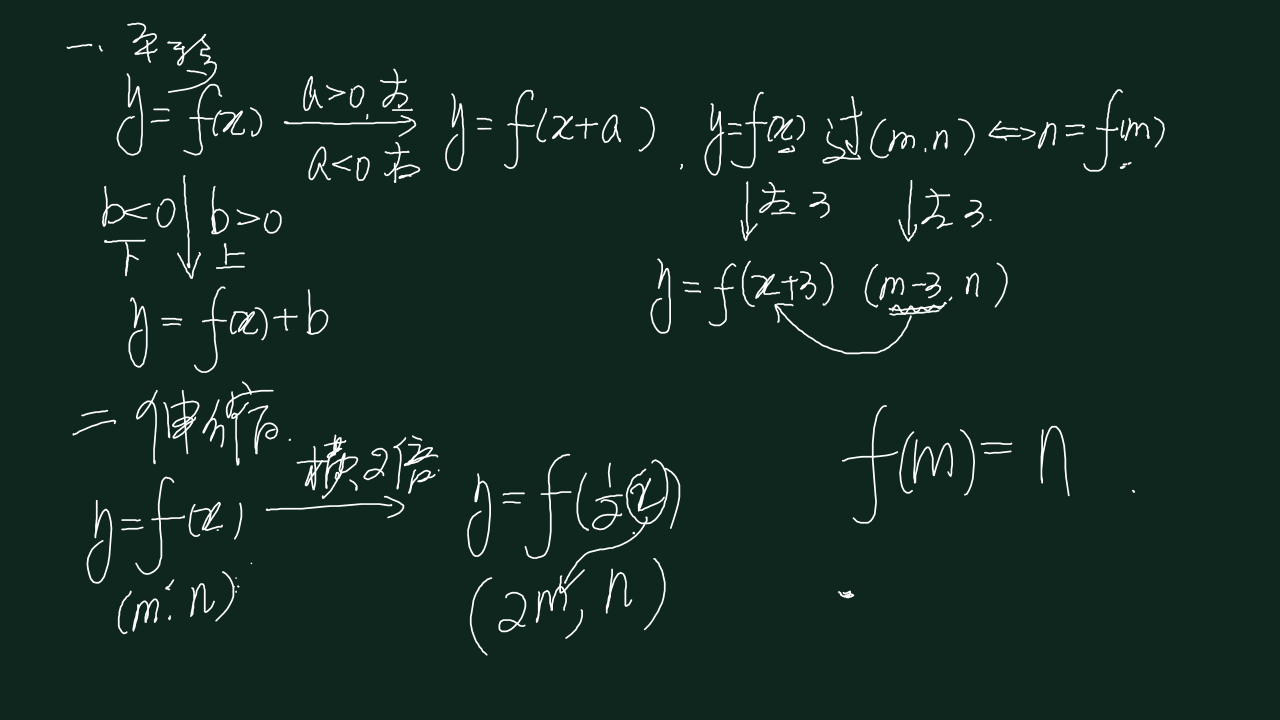 一、平移
y=f(x) a>0,左 a<0 右 y=f(x+a)
b<0 下 b>0 上
y=f(x)+b
y=f(x) 过(m,n) ⇔ n=f(m)
左3 左3.
y=f(x+3) (m-3,n)
二 伸缩.
y=f(x) 横2倍 y=f(½x)
(m,n) (2m,n)
f(m)=n